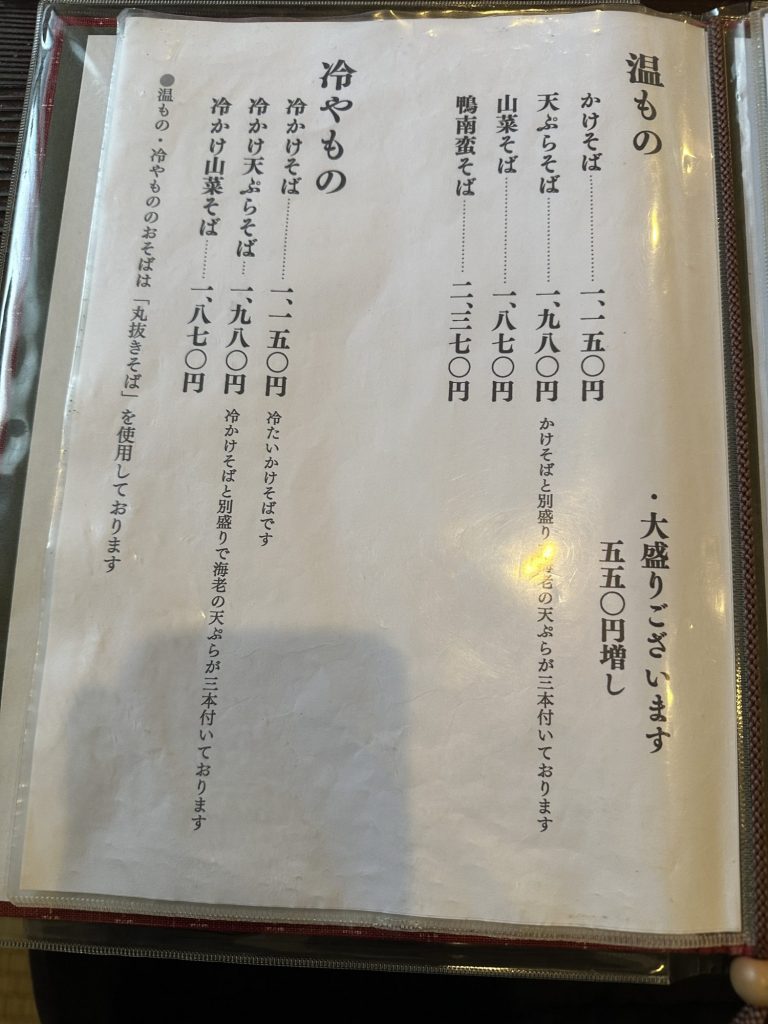 温もの
・大盛りございます
五五〇円増し
かけそば…………一、一五〇円
天ぷらそば…………一、九八〇円 かけそばと別盛り 海老の天ぷらが三本付いております
山菜そば…………一、八七〇円
鴨南蛮そば…………二、三七〇円
冷やもの
冷かけそば…………一、一五〇円 冷たいかけそばです
冷かけ天ぷらそば…一、九八〇円 冷かけそばと別盛りで海老の天ぷらが三本付いております
冷かけ山菜そば……一、八七〇円
●温もの・冷やもののおそばは「丸抜きそば」を使用しております